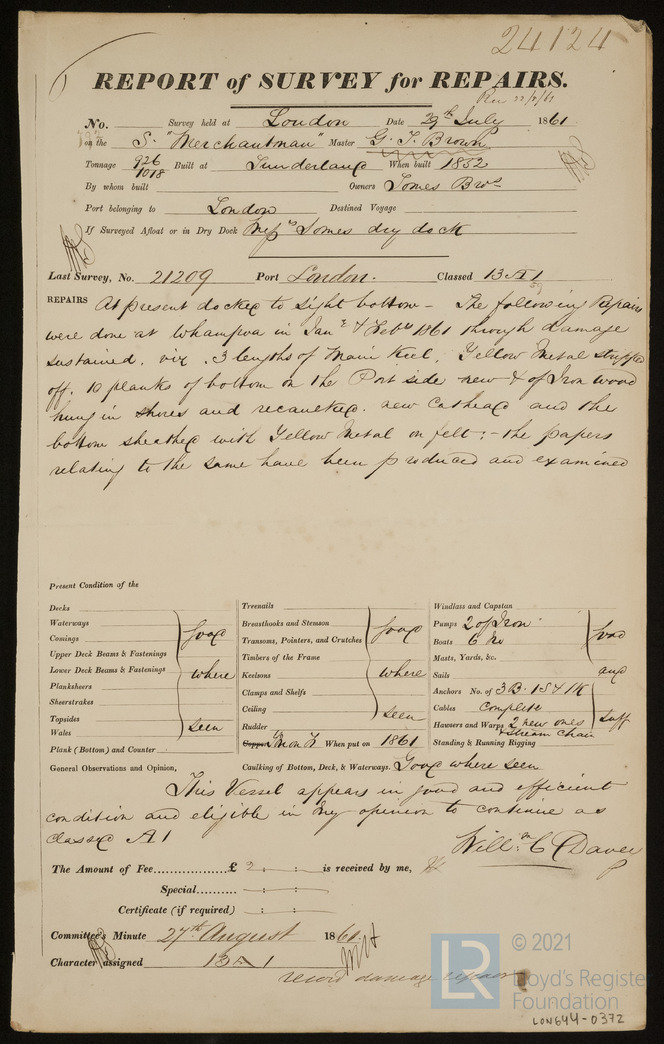 24124
REPORT of SURVEY for REPAIRS.
Rec 22/8/61
No. Survey held at London Date 29th July 1861
on the S. "Merchantman" Master G. T. Brown
Tonnage 926 1018 Built at Sunderland When built 1852
By whom built Owners Somes Bros
Port belonging to London Destined Voyage
If Surveyed Afloat or in Dry Dock Messrs Somes dry dock
Last Survey, No. 21209 Port London. Classed 13 A 1
59
REPAIRS At present docked to sight bottom - The following Repairs
were done at Whampoa in Jany & Feby 1861 through damage
sustained. viz. 3 lengths of Main Keel, Yellow Metal stripped
off. 10 planks of bottom on the Port side new & of Iron wood
hung in shores and recaulked. new Cathead and the
bottom sheathed with Yellow Metal on felt; - the papers
relating to the same have been produced and examined
Present Condition of the
Decks
Waterways
Comings
Upper Deck Beams & Fastenings
Lower Deck Beams & Fastenings
Planksheers
Sheerstrakes
Topsides
Wales
Plank (Bottom) and Counter
Good where seen
Treenails
Breasthooks and Stemson
Transoms, Pointers, and Crutches
Timbers of the Frame
Keelsons
Clamps and Shelfs
Ceiling
Rudder
Good where seen
Copper YM on F When put on 1861
Windlass and Capstan
Pumps 2 of Iron
Boats 6 No
Masts, Yards, &c.
Sails
Anchors No. of 3 B. 1 S & 1 K
Cables Complete
Hawsers and Warps 2 new ones & stream chain
Standing & Running Rigging
Good and suff
General Observations and Opinion, Caulking of Bottom, Deck, & Waterways. Good where seen
This Vessel appears in good and efficient
condition and eligible in my opinion to continue as
classed A 1
Willm C Davey
The Amount of Fee £ 2 : : is received by me,
Special : :
Certificate (if required) : :
Committee's Minute 27th August 1861.
Character assigned 13 A 1
record damage repairs
LR © 2021
Lloyd's Register
Foundation
LON644-0372